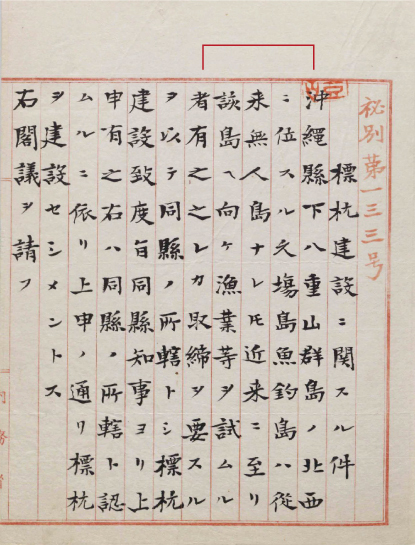 秘別第一三三号
標杭建設ニ関スル件
沖縄縣下八重山群島ノ北西
ニ位スル久塲島魚釣島ハ従
来無人島ナレ𪜈近来ニ至リ
該島ヘ向ケ漁業等ヲ試ムル
者有之之レカ取締ヲ要スル
ヲ以テ同縣ノ所轄トシ標杭
建設致度旨同縣知事ヨリ上
申有之右ハ同縣ノ所轄ト認
ムルニ依リ上申ノ通リ標杭
ヲ建設セシメントス
右閣議ヲ請フ